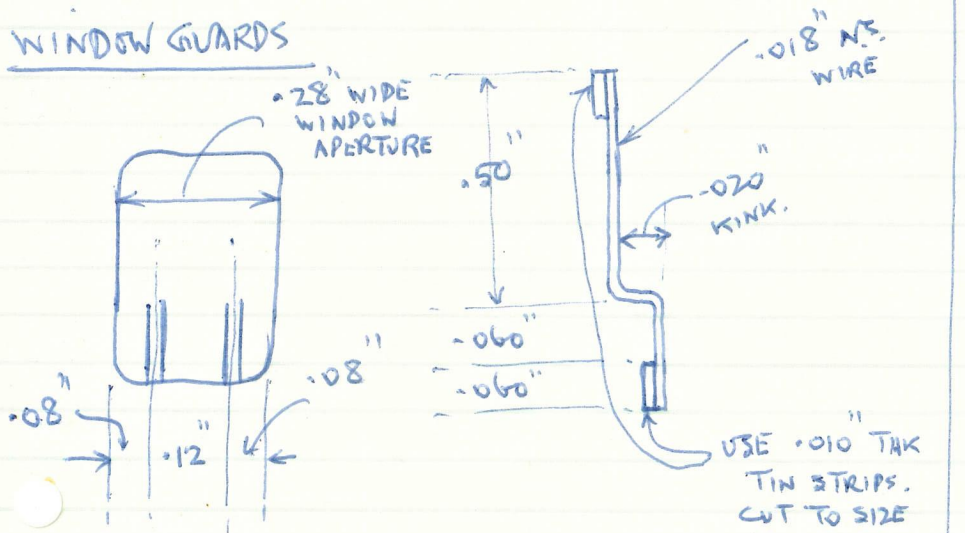 WINDOW GUARDS
.28" WIDE
WINDOW
APERTURE
.08"
.12"
.08"
.50"
.060"
.060"
.018" N.S.
WIRE
.020"
KINK.
USE .010" THK
TIN STRIPS.
CUT TO SIZE